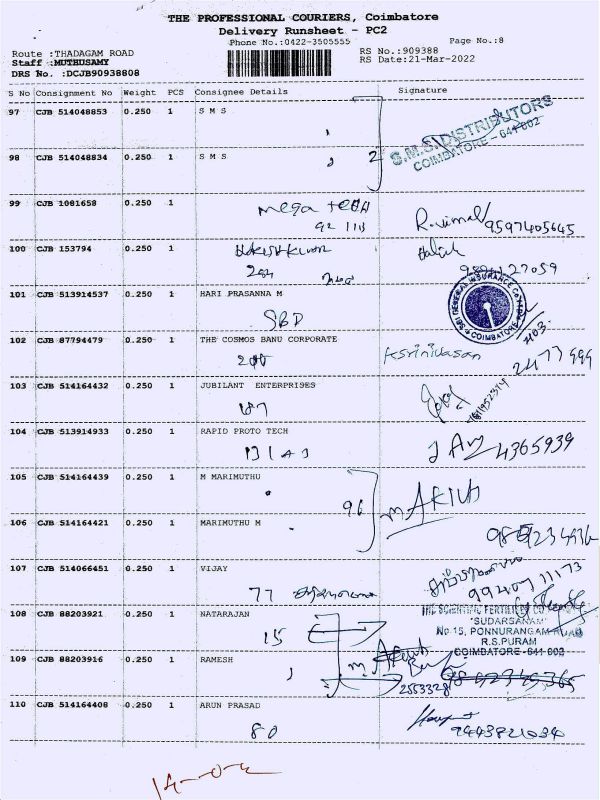 THE PROFESSIONAL COURIERS, Coimbatore
Delivery Runsheet - PC2
Phone No.:0422-3505555
Page No.:8
Route :THADAGAM ROAD
RS No.:909388
Staff :MUTHUSAMY
RS Date:21-Mar-2022
DRS No. :DCJB90938808
S No Consignment No Weight PCS Consignee Details Signature
97 CJB 514048853 0.250 1 S M S
S.M.S. DISTRIBUTORS
COIMBATORE - 641 002
98 CJB 514048834 0.250 1 S M S
2
99 CJB 1081658 0.250 1
mega tech
R.vimal
9597405645
100 CJB 153794 0.250 1
101 CJB 513914537 0.250 1 HARI PRASANNA M
SBI GENERAL INSURANCE
COIMBATORE
SBD
102 CJB 87794479 0.250 1 THE COSMOS BANU CORPORATE
Ksrinivasan
2477999
103 CJB 514164432 0.250 1 JUBILANT ENTERPRISES
104 CJB 513914933 0.250 1 RAPID PROTO TECH
4365939
105 CJB 514164439 0.250 1 M MARIMUTHU
96
106 CJB 514164421 0.250 1 MARIMUTHU M
107 CJB 514066451 0.250 1 VIJAY
77
108 CJB 88203921 0.250 1 NATARAJAN
15
THE SCIENTIFIC FERTILISER CO
"SUDARSANAM"
No.15, PONNURANGAM ROAD
R.S.PURAM
COIMBATORE - 641 002
109 CJB 88203916 0.250 1 RAMESH
2553328
110 CJB 514164408 0.250 1 ARUN PRASAD
80
9443821034